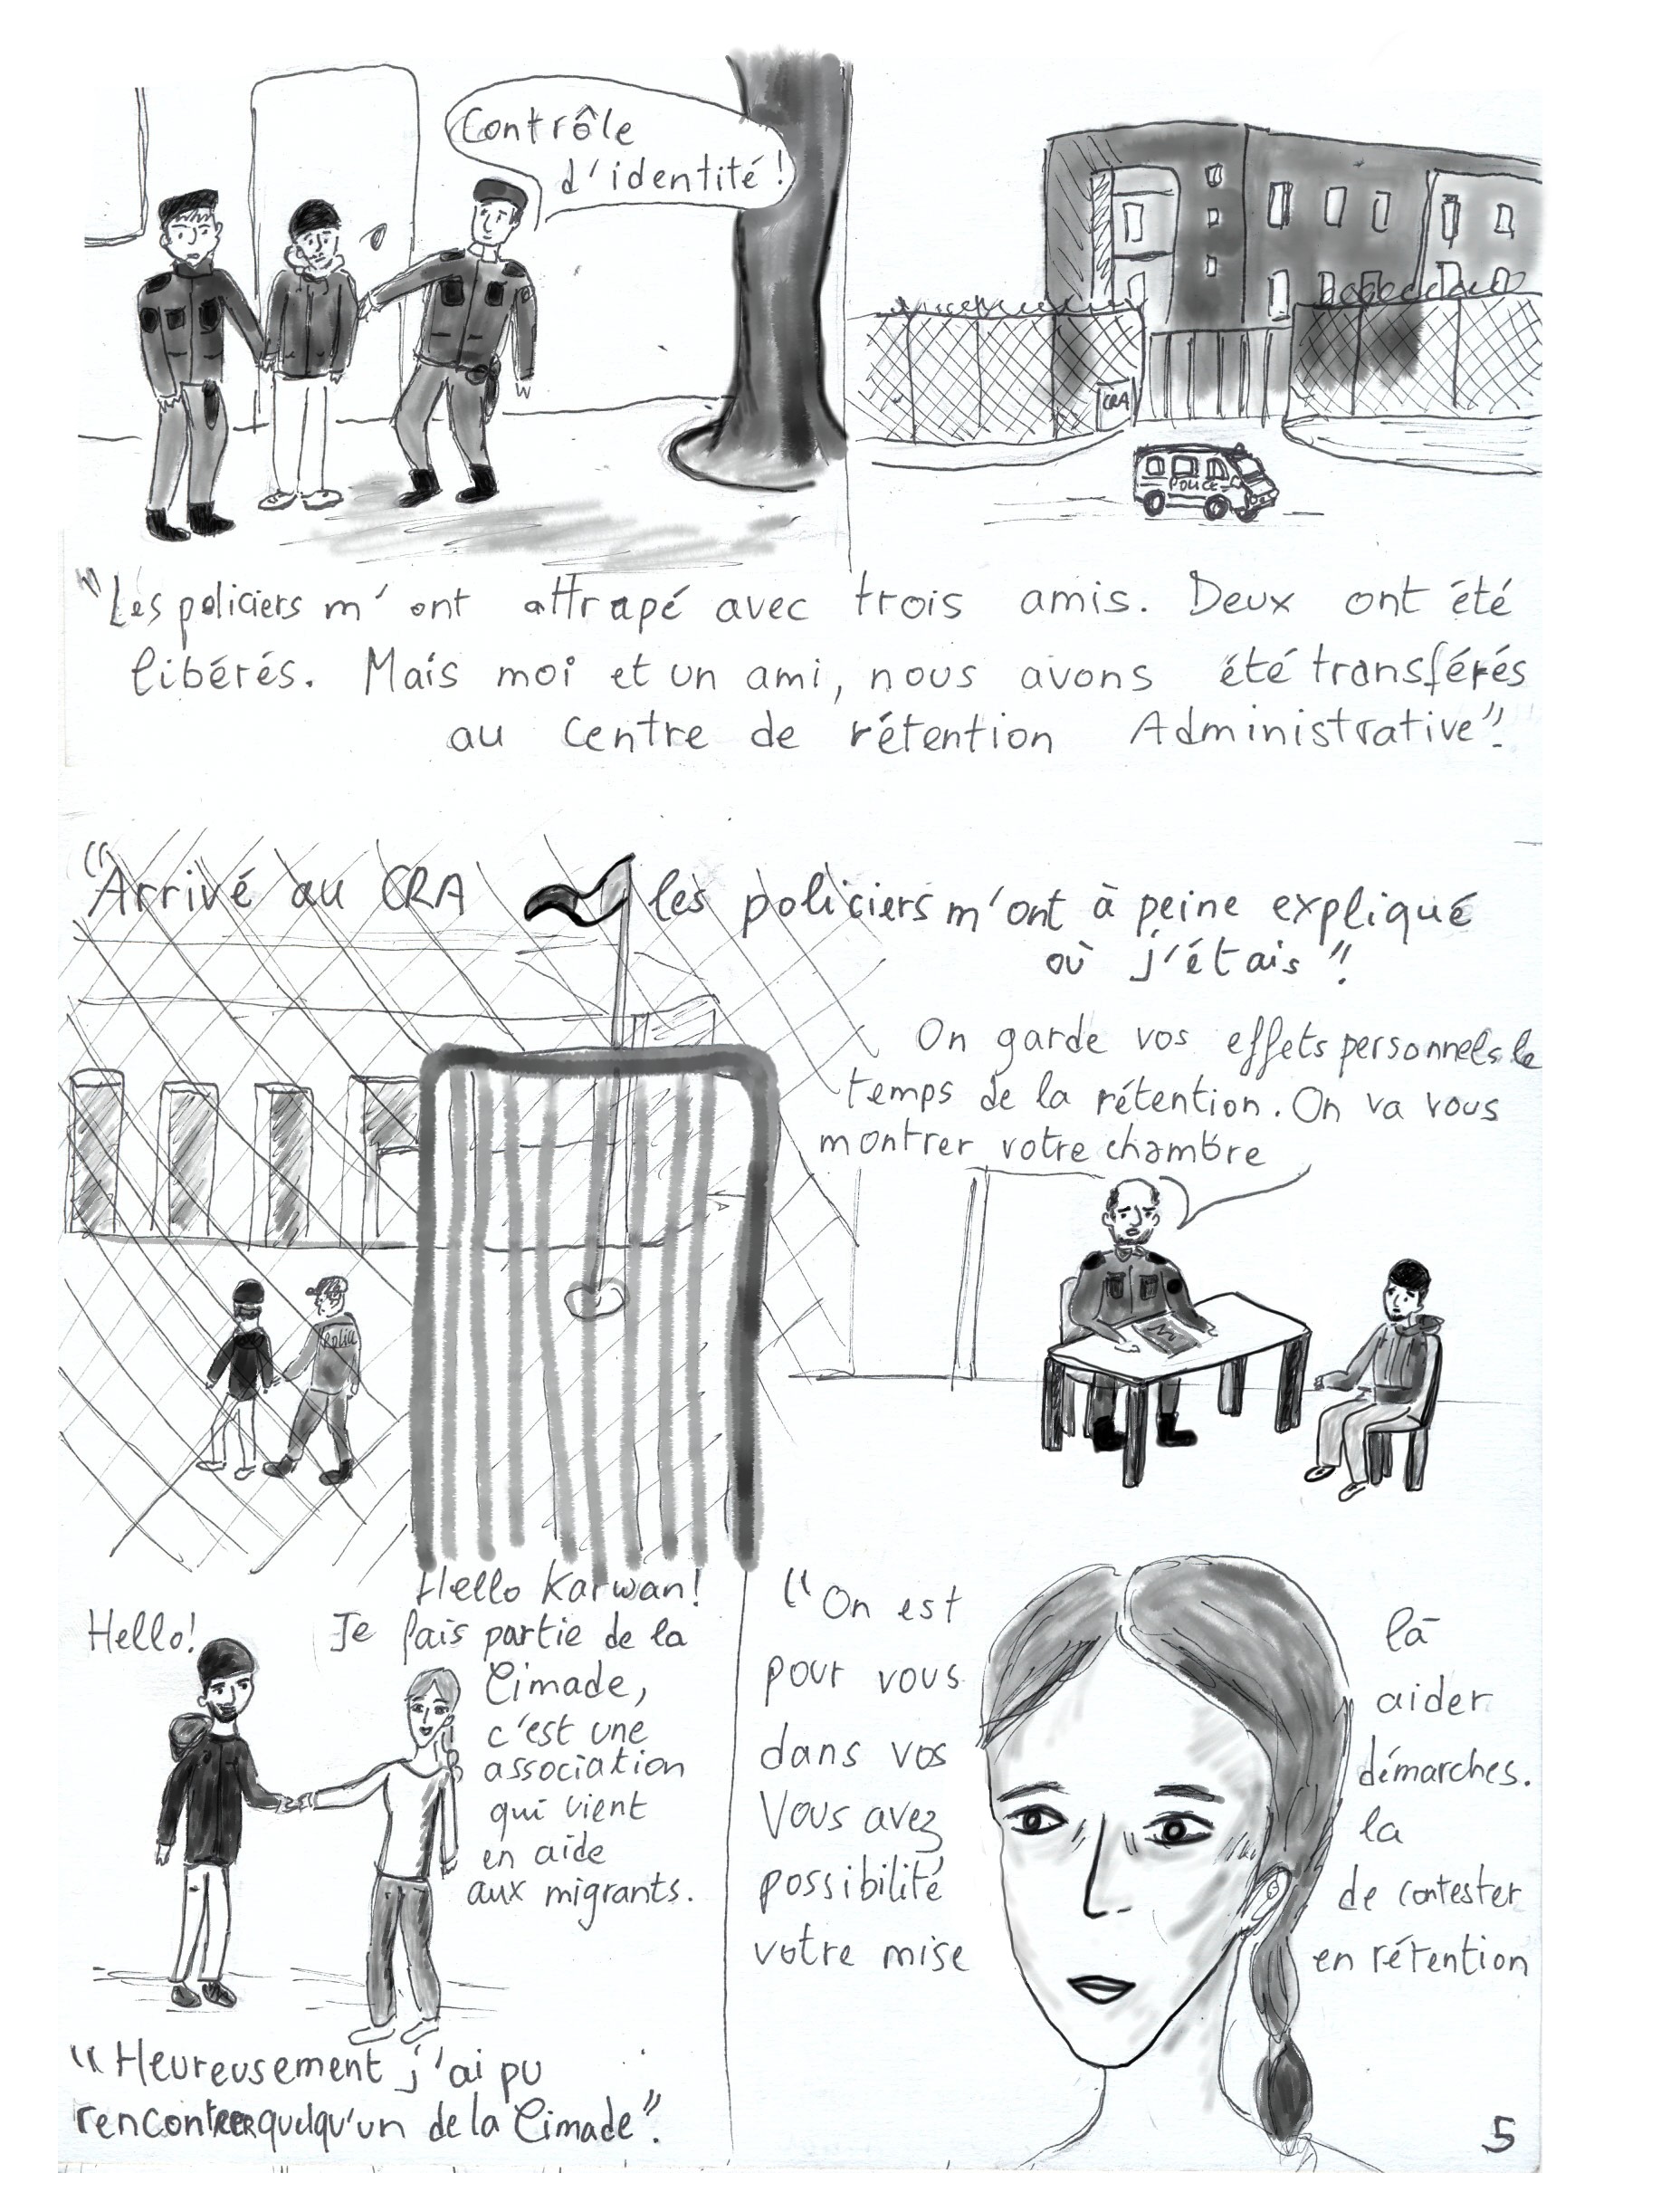 Contrôle
d'identité !
CRA
POLICE
"Les policiers m'ont attrapé avec trois amis. Deux ont été
libérés. Mais moi et un ami, nous avons été transférés
au centre de rétention Administrative".
"Arrivé au CRA les policiers m'ont à peine expliqué
où j'étais".
On garde vos effets personnels le
temps de la rétention. On va vous
montrer votre chambre
Police
Hello!
Hello Karwan!
Je fais partie de la
Cimade,
c'est une
association
qui vient
en aide
aux migrants.
"Heureusement j'ai pu
rencontrer quelqu'un de la Cimade".
"On est là
pour vous aider
dans vos démarches.
Vous avez la
possibilité de contester
votre mise en rétention
5